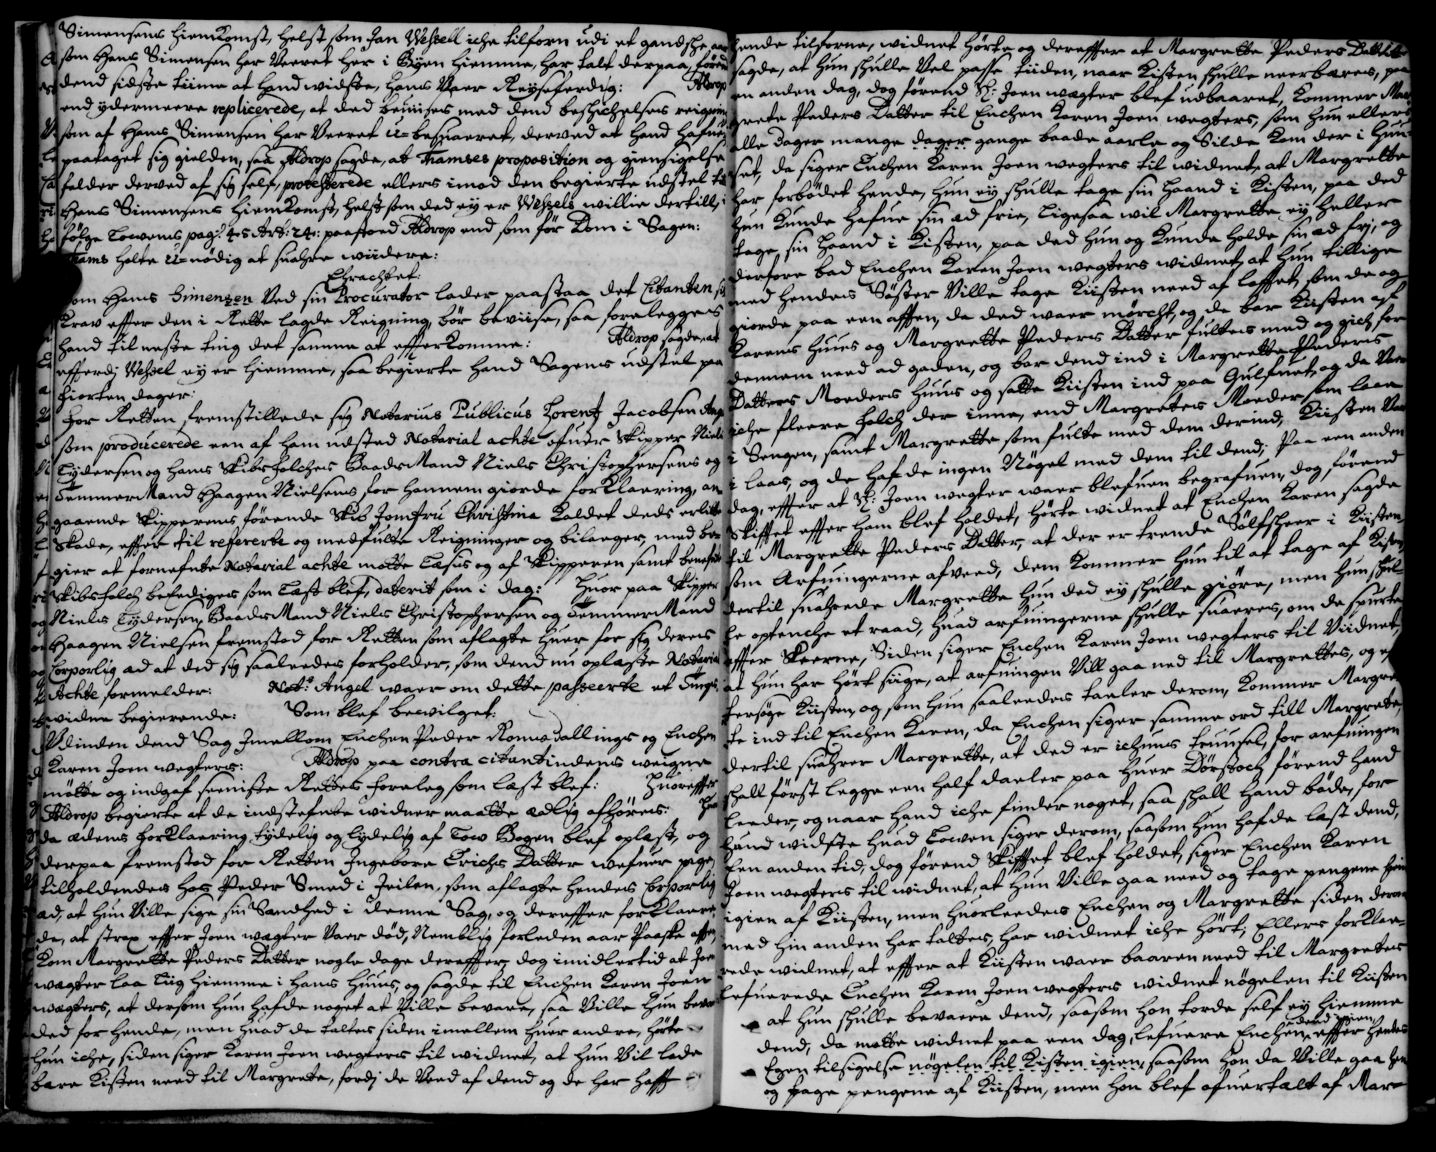 Simensens hiemkomst, helst som Jan Wessell iche tilforn udi et gandsche aar
som Hans Simensen har Veeret her i Byen hiemme, har talt derpaa, førend
dend sidste tiime at hand widste, hans Waer Reyseferdig: Aldrop
end ydermeere replicerede, at ded beviises med dend beschichelses reigning
som af Hans Simensen har Veeret u-besuaeret, derved at hand hafuer
paataget sig gielden, saa Aldrop sagde, at Framses proposition og giensigelse
falder derved af sig self, protesterede ellers imod den begierte udstel til
Hans Simensens hiemkomst, helst som ded ey er Wessels willie dertill,
følge Lowens pag: 45 Art: 24: paastod Aldrop end som før Dom i Sagen:
Frams holte u-nødig at suahre wiidere:
Eractet:
Som Hans Simenzen Ved sin Procurator lader paastaa det Citanten sit
Krav effter den i Rette lagde Reigning bør beviise, saa forelegges
hand til neste ting det samme at effterkomme: Aldrop sagde, at
efferdj Wessel ey er hiemme, saa begierte hand Sagens udstel paa
fiorten dager:
For Retten fremstillede sig Notarius Publicus Lorentz Jacobsen Angel
som producerede een af ham udsted Notarial achte ofuer Skipper Niels
Tydersen og hans Skibsfolches BaadsMand Niels Christophersens og
TemmerMand Haagen Nielsens for hannem giorde forklaering, an-
gaaende Skipperens førende Skib Jomfru Christina kaldet deds erlitte
Skade, effter til refererte og medfulte Reigninger og bilaeger, med be-
gier at fornefnte Notarial achte motte Læses og af Skipperen samt benefnte
Skibsfolch befediges som Læst blef, daterit som i dag: Huor paa Skipper
Niels Tydersen, BaadsMand Niels Christophersen og TemmerMand
Haagen Nielsen fremstod for Retten som aflagte huer for sig deris
Corporlig æd at ded sig saaleedes forholder, som dend nu oplæste Notarial
Achte formelder: Not: Angel waer om dette passeerte et Tings
widne begierende: Som blef bewilget:
Udinden dend Sag Imellom Enchen Peder Romsdallings og Enchen
Karen Joen wegters: Aldrop paa contra citantindens weigne
møtte og indgaf seeniste Rettes forelæg som læst blef: Huoreffter
Aldrop begierte at de indstefnte widner maatte ædlig afhøres: Huor
da ædens forklaering tydelig og lydelig af Low Bogen blef oplæst, og
derpaa fremstod for Retten Ingebore Erichs Datter wefuer pige
tilholdendes hos Peder Smed i Jeilen, som aflagte hendes Corporlig
æd, at hun Ville sige sin Sandhed i denne Sag, og dereffter forklaere-
de, at strax effter Joen wægter Vaer død, Nemblig forleden aar Paaske afften,
kom Margrette Peders Datter nogle dage dereffter, dog imidlertid at Joen
wægter laa Liig hiemme i hans Huus, og sagde til Enchen Karen Joen
wægters, at dersom hun hafde noget at Ville bevare, saa Ville hun bevare
ded for hende, men huad de taltes siden imellem huer andre, hørte
hun iche, siden siger Karen Joen wegters til widnet, at hun Vil lade
bære Kisten need til Margrete, fordj de Veed af dend og de har hafft
hende tilforne, widnet hørte og dereffter at Margrette Peders Datter
sagde, at hun schulle Vel passe tiiden, naar Kisten schulle neerbæres, paa
en anden dag, dog førend Sl: Joen wægter blef udbaaret, kommer Mar-
grete Peders Datter til Enchen Karen Joen wegters, som hun ellers
alle dager mange dager gange baade aarle og Silde kom der i Hu-
set, da siger Enchen Karen Joen wegters til widnet, at Margrette
har forbødet hende, hun ey schulle tage sin haand i Kisten, paa ded
hun kunde hafue sin æd frie, ligesaa wil Margrette ey heller
tage sin Haand i Kisten, paa ded hun og kunde holde sin æd frj, og
derfore bad Enchen Karen Joen wegters widnet, at hun tillige
med hendes Søster Ville tage Kiisten need af lofftet, som de og
giorde paa een afften, da ded waer mørcht, og de bar Kiisten af
Karens Huus og Margrette Peders Datter fulltes med og gich for
dennem need ad gaden, og bar dend ind i Margrette Peders
Datters Moeders Huus og satte Kiisten ind paa Gulfuet, og da Vaer
iche fleere folch der inne, end Margretes Moeder, som laae
i Sengen, samt Margrette som fulte med dem derind, Kiisten Vaer
i laas, og de hafde ingen Nøgel med dem til dend; Paa een anden
dag, effter at Sl: Joen wegter waer blefuen begrafuen, dog førend
Skifftet effter ham blef holdet, hørte widnet at Enchen Karen sagde
til Margrette Peders Datter, at der er trende Sølfscheer i Kiisten
som Arfuingerne afveed, dem kommer hun til at tage af Kisten
dertil suahrede Margrette hun ded ey schulle giøre, men hun schul-
le optenche et raad, huad arfuingerne schulle suaeres, om de spurte
effter Skeerne, Siden siger Enchen Karen Joen wegters til Widnet,
at hun har hørt siige, at arfuingen Vill gaa ned til Margrettes, og ef-
tersøge Kiisten, og som hun saaleedes taeler derom, kommer Margre-
te ind til Enchen Karen, da Enchen siger samme ord till Margrete,
dertil suahrer Margrette, at ded er ichuns truusel, for arfuingen
shall først legge een half daeler paa huer Dørstoch førend hand
leeder, og naar hand iche finder noget, saa shall hand bøde, for
hund widste huad Lowen siger derom, saasom hun hafde læst dend,
Een anden tid, dog førend Skifftet blef holdet, siger Enchen Karen
Joen wegters til widnet, at hun Ville gaa need og tage pengene sine
igien af Kiisten, men huorleedes Enchen og Margrette siden derom
med hin anden har talltes, har widnet iche hørt, Ellers forklae-
rede widnet, at effter at Kiisten waer baaren need til Margretes
lefuerede Enchen Karen Joen wegters widnet nøgelen til Kiisten
at hun schulle bevaere dend, saasom hon torde self ey hiemme
dend, da motte widnet paa een dag, lefuere Enchen dend igien effter hendes
Egen tilsigelse nøgelen til Kiisten igien, saasom hon da Ville gaa hen
og tage pengene af Kiisten, men hon blef ofuertalt af Mar-